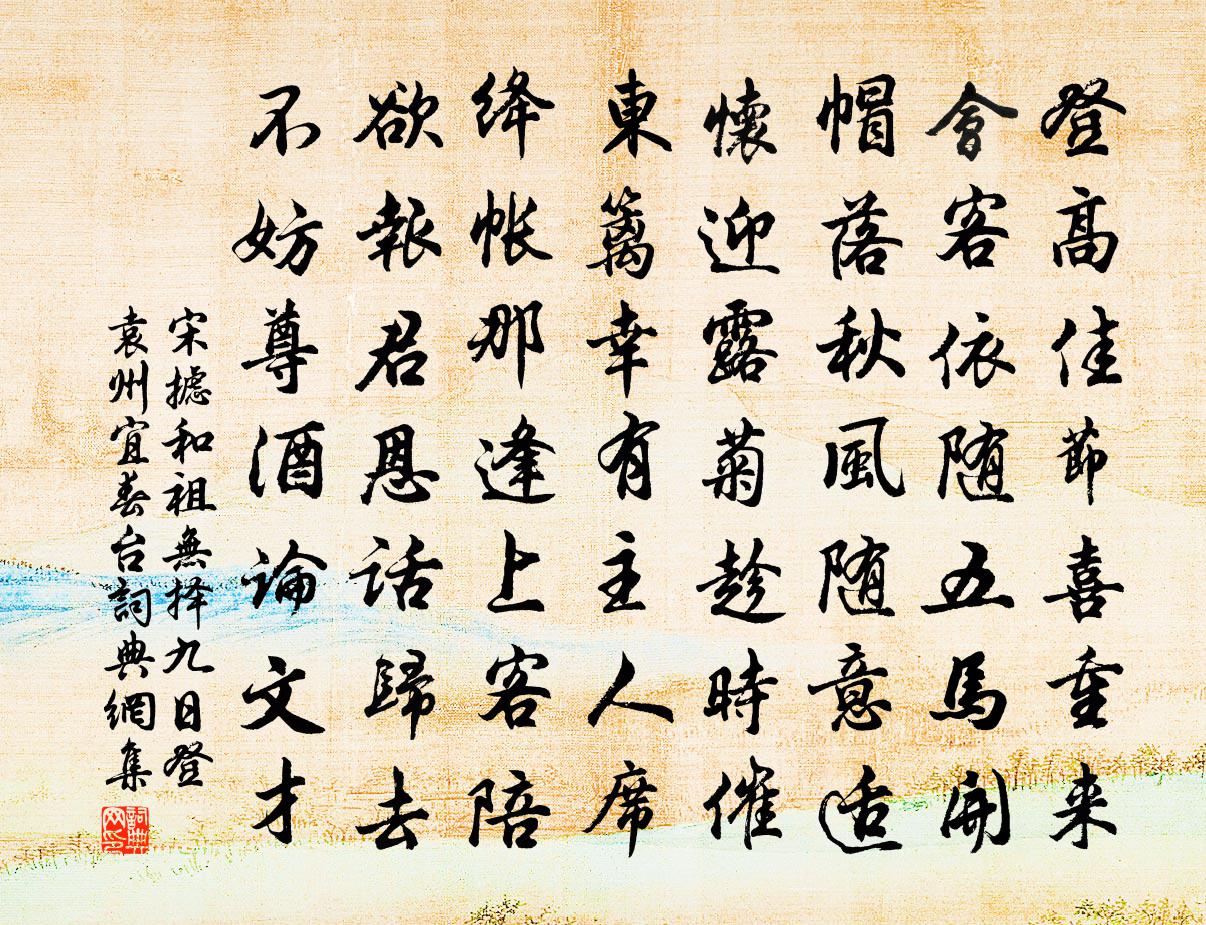 登高佳節喜重来
會客依随五馬開
帽落秋風随意适
懷迎露菊趁時催
東篱幸有主人席
绛帐那逢上客陪
欲報君恩话歸去
不妨尊酒論文才
宋摅和祖無择九日登
袁州宜春台詞典網集
詞典网印